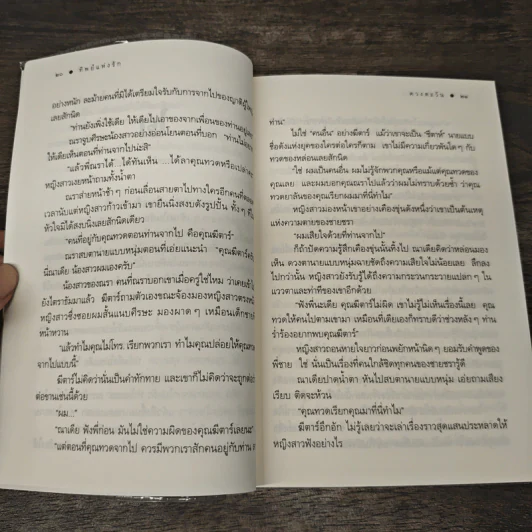 ๒๐ ● ทิพย์แห่งรัก
อย่างหนัก ละม้ายคนที่มิได้เตรียมใจรับกับการจากไปของญาติผู้ใหญ่
เลยสักนิด
"ท่านยังเพิ่งใช้เดีย ให้เดียไปเอาของจากเพื่อนของท่านอยู่
ณราจูบศีรษะน้องสาวอย่างอ่อนโยนตอนที่บอก "ท่านไม่
ให้เดียเห็นตอนที่ท่านจากไปน่ะสิ"
"แล้วพี่ณราได้ ได้ทันเห็น ...ได้ลาคุณทวดหรือเปล่า
หญิงสาวเงยหน้าถามทั้งน้ำตา
ณราส่ายหน้าช้าๆ ก่อนเลื่อนสายตาไปทางใครอีกคนที่
เวลานับแต่หญิงสาวก้าวเข้ามา เขายืนนิ่งสงบดังรูปปั้น ทั้งๆ ที่
หัวใจมิได้สงบนิ่งเลยสักนิดเดียว
"คนที่อยู่กับคุณทวดตอนท่านจากไป คือคุณฆีตาร์"
ณราสบตานายแบบหนุ่มตอนที่เอ่ยแนะนำ "คุณฆีตาร์
พี่ณาเดีย น้องสาวผมเองครับ"
น้องสาวของณรา คนที่ณราบอกเขาเมื่อครู่ใช่ไหม ว่าเคย
ยังโตรามัมาแล้ว ฆีตาร์ถามตัวเองขณะจ้องมองหญิงสาวตรง
หญิงสาวซึ่งซอยผมสั้นแนบศีรษะ มองผาดๆ เหมือนเด็กชาย
หน้าหวาน
"แล้วทำไมคุณไม่โทร. เรียกพวกเรา ทำไมคุณปล่อยให้คุณ
จากไปแบบนี้"
ฆีตาร์ไม่คิดว่านั่นเป็นคำทักทาย และเขาก็ไม่คิดว่าจะถูกต่อ
ต่อขานเช่นนี้ด้วย
"ผม..."
"ณาเดีย ฟังพี่ก่อน มันไม่ใช่ความผิดของคุณฆีตาร์เลยนะ"
"แต่ตอนที่คุณทวดจากไป ควรมีพวกเราสักคนอยู่กับท่าน
ดวงตะวัน ● ๒๑
ท่าน"
ไม่ใช่ "คนอื่น" อย่างฆีตาร์ แม้ว่าเขาจะเป็น 'ซีตาห์' นายแบบ
ชื่อดังแห่งยุคของใครต่อใครก็ตาม เขาไม่มีความเกี่ยวพันใดๆ กับ
ทวดของหล่อนเลยสักนิด
"ใช่ ผมเป็นคนอื่น ผมไม่รู้จักพวกคุณหรือแม้แต่คุณทวดของ
คุณเลย และผมบอกคุณณราไปแล้วว่าผมไม่ทราบด้วยซ้ำ ว่าคุณ
ทวดยาลันของคุณเรียกผมมาที่นี่ทำไม"
หญิงสาวมองหน้าเขาอย่างเคืองขุ่นดังหนึ่งว่าเขาเป็นต้นเหตุ
แห่งความตายของชายชรา
"ผมเสียใจด้วยที่ท่านจากไป"
ก็ถ้าปัดความรู้สึกเคืองขุ่นนั้นทิ้งไป ณาเดียคิดว่าหล่อนมอง
เห็น ดวงตานายแบบหนุ่มฉายชัดถึงความเสียใจไม่น้อยเลย ลึกลง
ไปกว่านั้น หญิงสาวยังรับรู้ได้ถึงความกระวนกระวายแปลกๆ ใน
แววตาและท่าทีของเขาอีกด้วย
"ฟังพี่นะเดีย คุณฆีตาร์ไม่ผิด เขาไม่รู้ไม่เห็นเรื่องนี้เลย คุณ
ทวดให้คนไปตามเขามา เหมือนที่เดียเองก็ทราบดีว่าช่วงหลังๆ ท่าน
ร่ำร้องอยากพบคุณฆีตาร์"
หญิงสาวถอนหายใจยาวก่อนพยักหน้านิดๆ ยอมรับคำพูดของ
พี่ชาย ใช่ นั่นเป็นเรื่องที่คนใกล้ชิดทุกคนของชายชรารู้ดี
ณาเดียปาดน้ำตา หันไปสบตานายแบบหนุ่ม เอ่ยถามเสียง
เรียบ ติดจะห้วน
"คุณทวดเรียกคุณมาที่นี่ทำไม"
ฆีตาร์อึกอัก ไม่รู้เลยว่าจะเล่าเรื่องราวสุดแสนประหลาดให้
หญิงสาวฟังอย่างไร